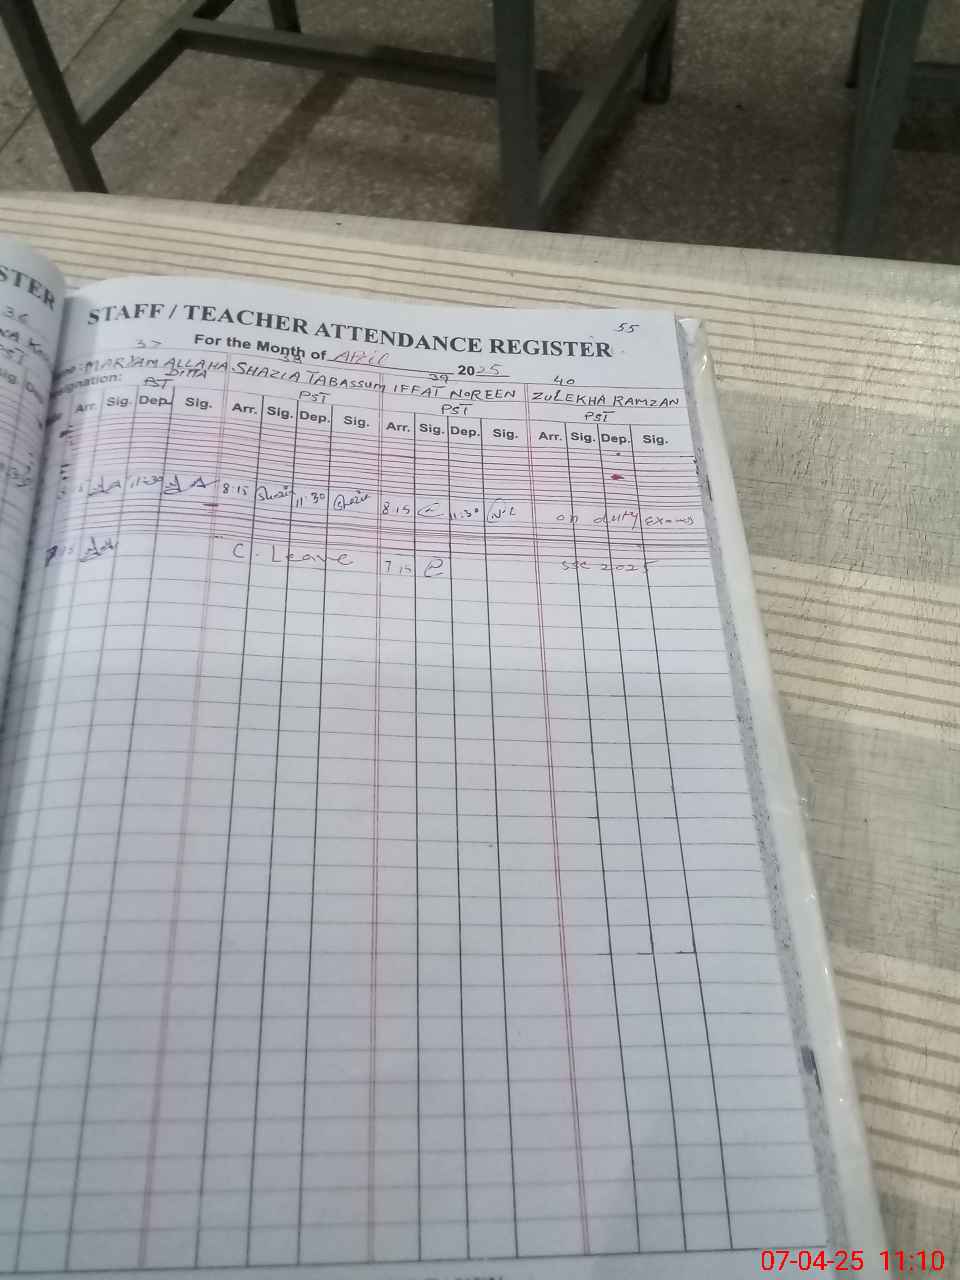 STER
36
55
STAFF / TEACHER ATTENDANCE REGISTER
For the Month of April 2025
37 38 39 40
MARYAM ALLAHA DITTA SHAZIA TABASSUM IFFAT NOREEN ZULEKHA RAMZAN
PST PST PST PST
Arr. Sig. Dep. Sig. Arr. Sig. Dep. Sig. Arr. Sig. Dep. Sig. Arr. Sig. Dep. Sig.
11:30 8:15 11:30 8:15 11:30 on duty exams
C. Leave 7:15 SSC 2025
07-04-25 11:10